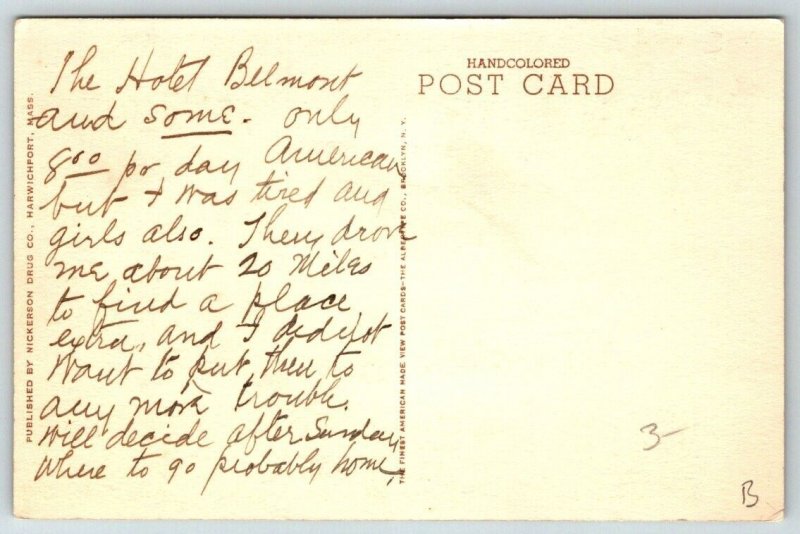 The Hotel Belmont
and some. only
8.00 pr day American
but I was tired and
girls also. They drove
me about 20 Miles
to find a place
extra, and I did not
want to put them to
any more trouble.
Will decide after Sunday
where to go probably home.
PUBLISHED BY NICKERSON DRUG CO., HARWICHPORT, MASS.
THE FINEST AMERICAN MADE VIEW POST CARDS—THE ALBERTYPE CO., BROOKLYN, N. Y.
HANDCOLORED
POST CARD
3-
B